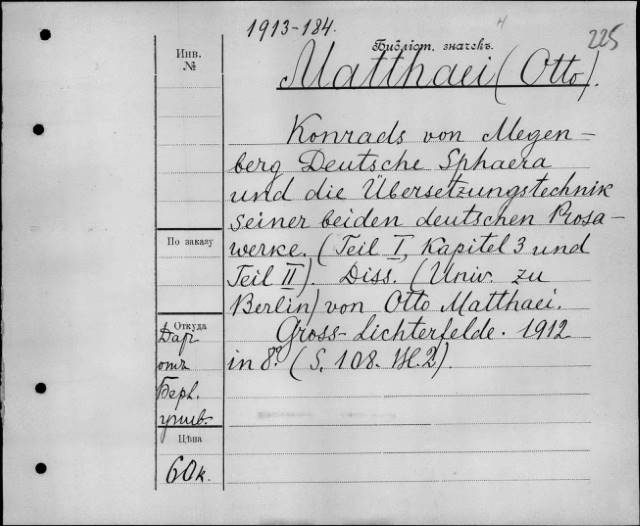 1913-184.
225
Инв.
№
Библіот. значекъ.
Matthaei (Otto).
Konrads von Megen-
berg Deutsche Sphaera
und die Übersetzungstechnik
seiner beiden deutschen Prosa-
werke. (Teil I, Kapitel 3 und
Teil II). Diss. (Univ. zu
Berlin) von Otto Matthaei.
Gross-Lichterfelde. 1912
in 8º. (S. 108. Bl. 2).
По заказу
Откуда
Дар
отъ
Берл.
унив.
Цѣна
60к.